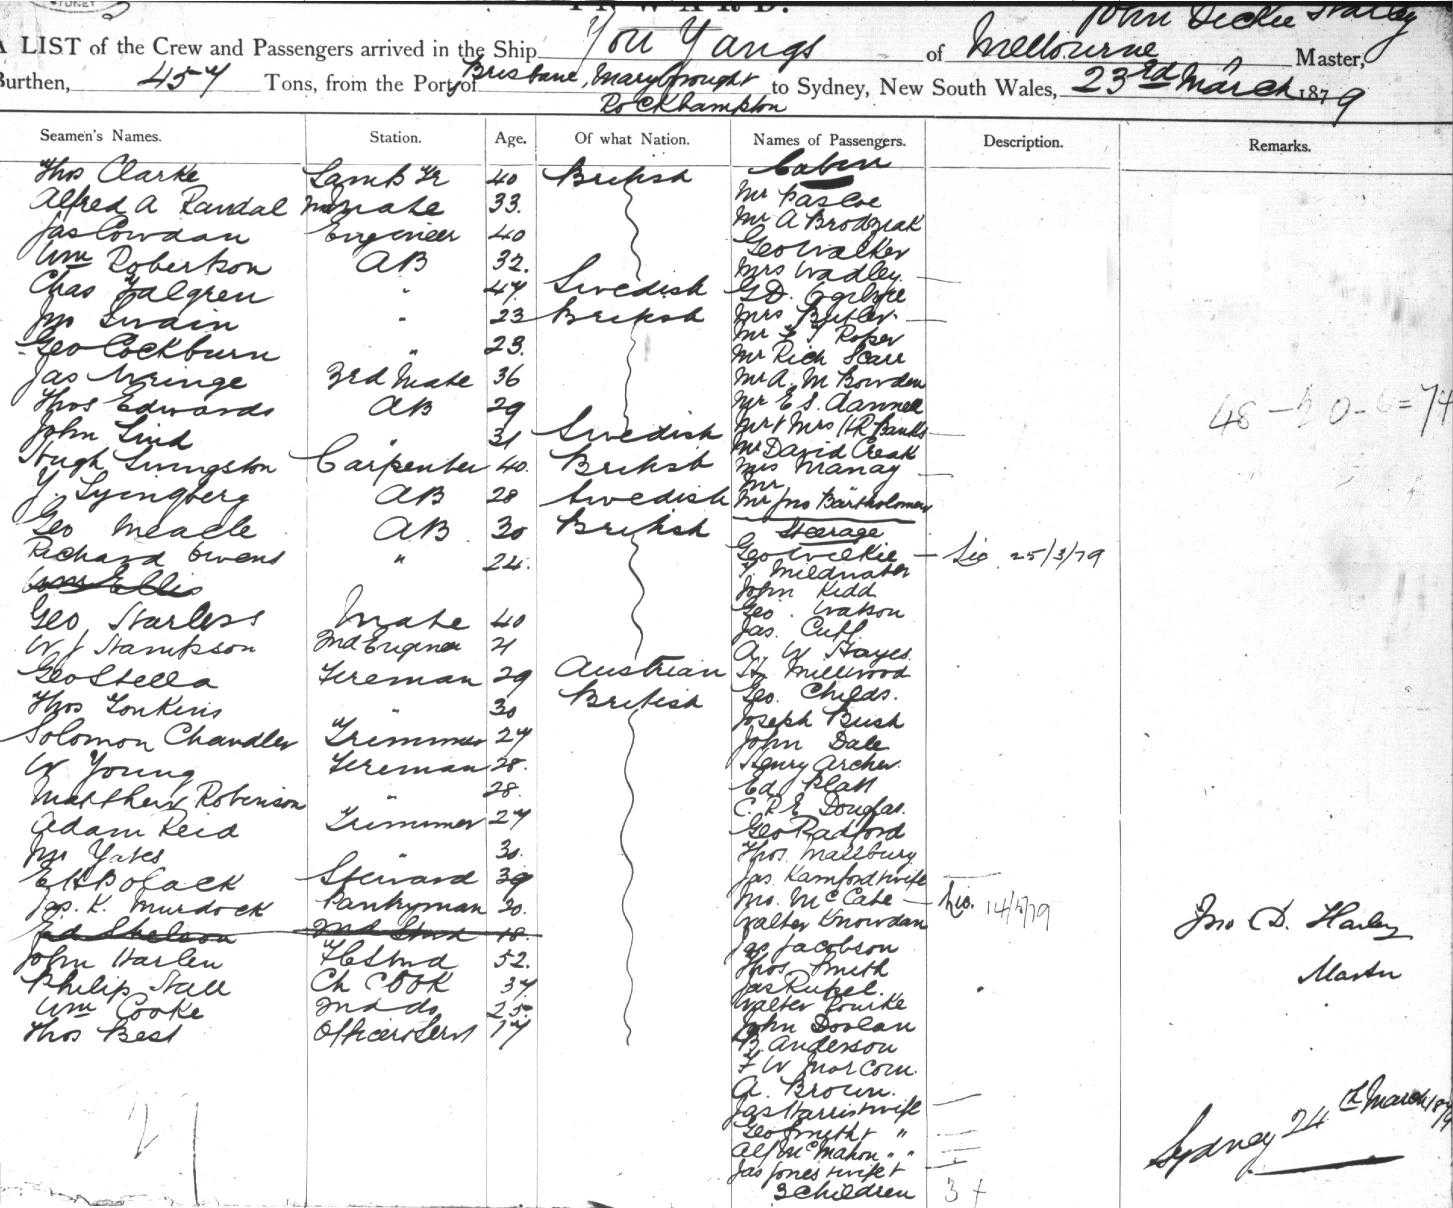 SYDNEY
INWARD.
John Dickie Harley
A LIST of the Crew and Passengers arrived in the Ship You Yangs of Melbourne Master,
Burthen, 457 Tons, from the Port of Brisbane, Maryborough to Sydney, New South Wales, 23rd March 1879
Rockhampton
Seamen's Names. Station. Age. Of what Nation. Names of Passengers. Description. Remarks.
Thos Clarke Lamb Tr 40 British
Alfred A Randal mate 33.
Jas Cowdan Engineer 40
Wm Robertson AB 32.
Chas Falgren " 47 Swedish
Jno Swain " 23 British
Geo Cockburn " 23.
Jas 3rd Mate 36
Thos Edwards AB 29
John Lind " 31 Swedish
Hugh Livingston Carpenter 40. British
J. AB 28 Swedish
Geo Meade AB 30 British
Richard Owens " 24.
Wm Ellis
Geo. Harless Mate 40
W J Hampson 2nd Engineer 21
Geo Stella Fireman 29 Austrian
Thos Tonkins " 30 British
Solomon Chandler Trimmer 27
W Young Fireman 28.
Matthew Robinson " 28.
Adam Reid Trimmer 27
Jno Yates " 30.
E H Bolack Steward 39
Jas. K. Murdock Pantryman 20.
Ed Shelson 2nd Stwd 18.
John Harlen F C Stwd 52.
Philip Hall Ch Cook 37
Wm Cooke 2nd do 25
Thos Best Officers Servt 17
Cabin
Mr Pascoe
Mr A Brodziak
Geo Walker
Mrs Wadley
G D. Ogilvie
Mrs Butler
Mr F J Roper
Mr Rich Scarr
Mr A. M Bowden
Mr E S. Dannell
Mr & Mrs H R Banks
Mr David Creak
Mrs Manay
Mr
Mr Jno Bartholomew
Steerage
Geo Wilkie Lic 25/3/79
F. Mildwater
John Kidd
Geo. Watson
Jas. Cuff
A. W Hayes
H. Millwood
Geo. Childs.
Joseph Bush
John Dale
Henry Archer
Ed. Platt
C. R E Douglas.
Geo Radford
Thos. Mallbury
Jas Kamford & wife
Jno. McCabe Lic. 14/5/79
Walter Knowdan
Jas Jacobson
Thos Smith
Jas Rupel.
Walter Rourke
John Doolan
B Anderson
F W Marcom.
A. Brown.
Jas Harris & wife
Geo Smith & "
Alf McMahon " "
Jas Jones & wife &
3 Children 3 +
48 - 20 - 6 = 74
Jno D. Harley
Master
Sydney 24th March 1879